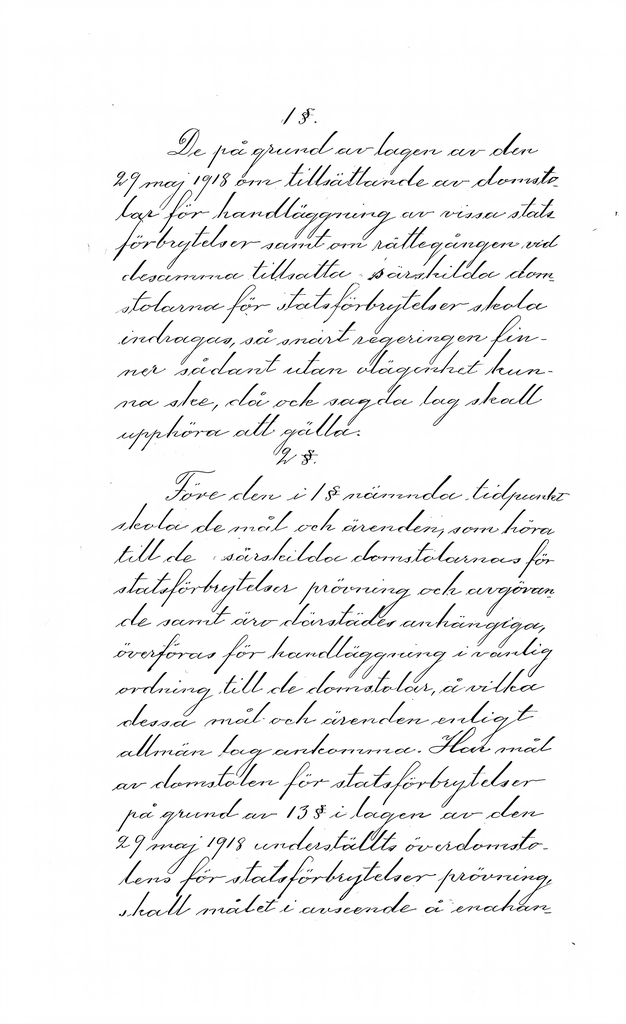 1 §.
De på grund av lagen av den
29 maj 1918 om tillsättande av domsto-
lar för handläggning av vissa stats
förbrytelser samt om rättegången vid
desamma tillsatta särskilda dom-
stolarna för statsförbrytelser skola
indragas, så snart regeringen fin-
ner sådant utan olägenhet kun-
na ske, då ock sagda lag skall
upphöra att gälla.
2 §.
Före den i 1 § nämnda tidpunkt
skola de mål och ärenden, som höra
till de särskilda domstolarnas för
statsförbrytelser prövning och avgöran-
de samt äro därstädes anhängiga,
överföras för handläggning i vanlig
ordning till de domstolar, å vilka
dessa mål och ärenden enligt
allmän lag ankomma. Har mål
av domstolen för statsförbrytelser
på grund av 13 § i lagen av den
29 maj 1918 underställts överdomsto-
lens för statsförbrytelser prövning,
skall målet i avseende å enahan-